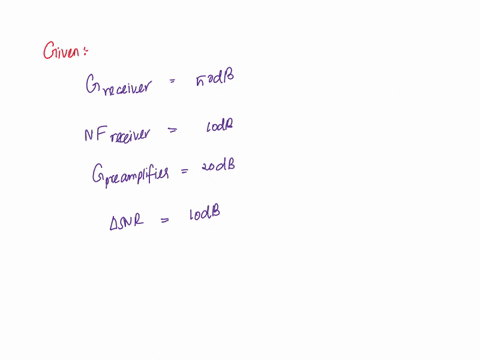 Given:
G receiver = 50dB
NF receiver = 10dB
G preamplifier = 20dB
ΔSNR = 10dB